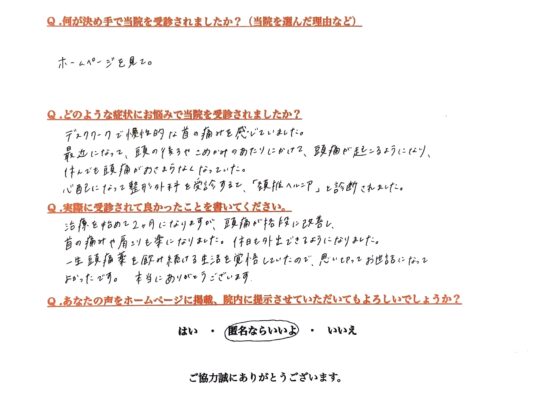 Q.何が決め手で当院を受診されましたか？（当院を選んだ理由など）
ホームページを見て。
Q.どのような症状にお悩みで当院を受診されましたか？
デスクワークで慢性的な首の痛みを感じていました。
最近になって、頭の後ろやこめかみのあたりにかけて、頭痛が起こるようになり、
休んでも頭痛がおさまらなくなっていた。
心配になって整形外科を受診すると、「頚椎ヘルニア」と診断されました。
Q.実際に受診されて良かったことを書いてください。
治療を始めて2ヶ月になりますが、頭痛が格段に改善し、
首の痛みや肩こりも楽になりました。休日も外出できるようになりました。
一生頭痛薬を飲み続ける生活を覚悟していたので、思い切ってお世話になって
よかったです。 本当にありがとうございます
Q.あなたの声をホームページに掲載、院内に提示させていただいてもよろしいでしょうか？
はい ・ 匿名ならいいよ ・ いいえ
ご協力誠にありがとうございます。